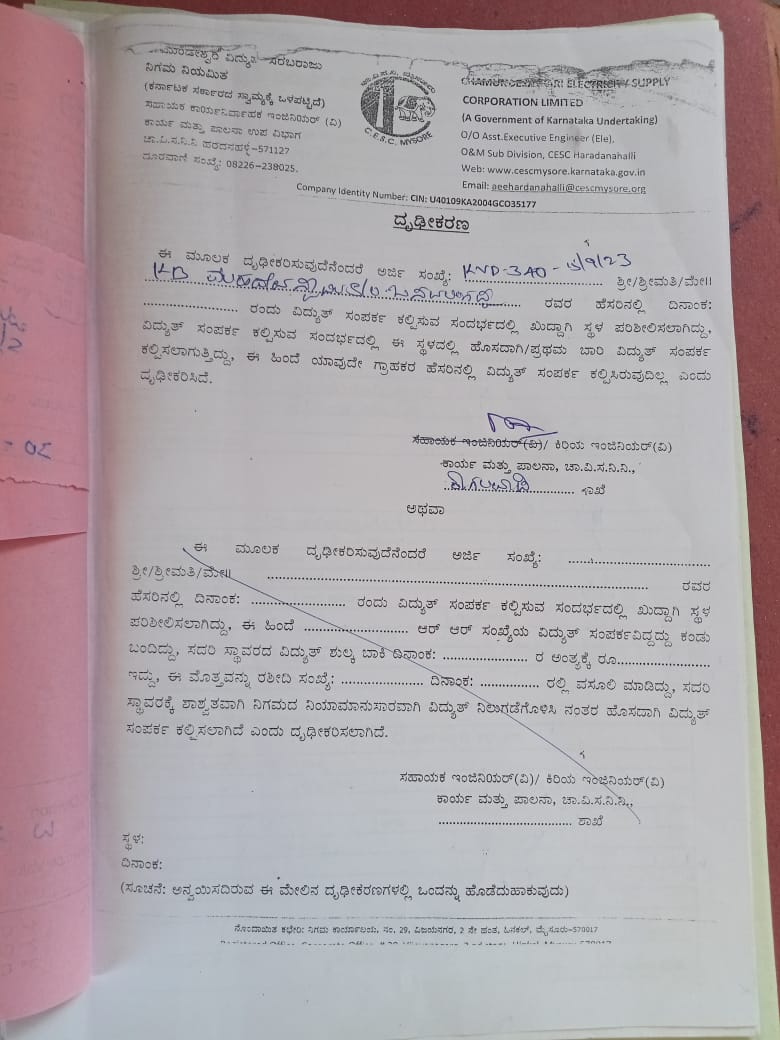 ವಿದ್ಯುತ್ ಸರಬರಾಜು
ನಿಗಮ ನಿಯಮಿತ
(ಕರ್ನಾಟಕ ಸರ್ಕಾರದ ಸ್ವಾಮ್ಯಕ್ಕೆ ಒಳಪಟ್ಟಿದೆ)
ಸಹಾಯಕ ಕಾರ್ಯನಿರ್ವಾಹಕ ಇಂಜಿನಿಯರ್ (ವಿ)
ಕಾರ್ಯ ಮತ್ತು ಪಾಲನಾ ಉಪ ವಿಭಾಗ
ಚಾ.ವಿ.ಸ.ನಿ.ನಿ ಹರದನಹಳ್ಳಿ-571127
ದೂರವಾಣಿ ಸಂಖ್ಯೆ: 08226-238025.
C.E.S.C. MYSORE
CHAMUNDESHWARI ELECTRICITY SUPPLY
CORPORATION LIMITED
(A Government of Karnataka Undertaking)
O/O Asst.Executive Engineer (Ele),
O&M Sub Division, CESC Haradanahalli
Web: www.cescmysore.karnataka.gov.in
Email: aeehardanahalli@cescmysore.org
Company Identity Number: CIN: U40109KA2004GCO35177
ದೃಢೀಕರಣ
ಈ ಮೂಲಕ ದೃಢೀಕರಿಸುವುದೆನೆಂದರೆ ಅರ್ಜಿ ಸಂಖ್ಯೆ: KVD-340-15/9/23 ಶ್ರೀ/ಶ್ರೀಮತಿ/ಮೇ॥
KB ರವರ ಹೆಸರಿನಲ್ಲಿ ದಿನಾಂಕ:
.................... ರಂದು ವಿದ್ಯುತ್ ಸಂಪರ್ಕ ಕಲ್ಪಿಸುವ ಸಂದರ್ಭದಲ್ಲಿ ಖುದ್ದಾಗಿ ಸ್ಥಳ ಪರಿಶೀಲಿಸಲಾಗಿದ್ದು,
ವಿದ್ಯುತ್ ಸಂಪರ್ಕ ಕಲ್ಪಿಸುವ ಸಂದರ್ಭದಲ್ಲಿ ಈ ಸ್ಥಳದಲ್ಲಿ ಹೊಸದಾಗಿ/ಪ್ರಥಮ ಬಾರಿ ವಿದ್ಯುತ್ ಸಂಪರ್ಕ
ಕಲ್ಪಿಸಲಾಗುತ್ತಿದ್ದು, ಈ ಹಿಂದೆ ಯಾವುದೇ ಗ್ರಾಹಕರ ಹೆಸರಿನಲ್ಲಿ ವಿದ್ಯುತ್ ಸಂಪರ್ಕ ಕಲ್ಪಿಸಿರುವುದಿಲ್ಲ ಎಂದು
ದೃಢೀಕರಿಸಿದೆ.
ಸಹಾಯಕ ಇಂಜಿನಿಯರ್(ವಿ)/ ಕಿರಿಯ ಇಂಜಿನಿಯರ್(ವಿ)
ಕಾರ್ಯ ಮತ್ತು ಪಾಲನಾ, ಚಾ.ವಿ.ಸ.ನಿ.ನಿ.,
ಶಾಖೆ
ಅಥವಾ
ಈ ಮೂಲಕ ದೃಢೀಕರಿಸುವುದೆನೆಂದರೆ ಅರ್ಜಿ ಸಂಖ್ಯೆ: ....................
ಶ್ರೀ/ಶ್ರೀಮತಿ/ಮೇ॥ .................... ರವರ
ಹೆಸರಿನಲ್ಲಿ ದಿನಾಂಕ: .................... ರಂದು ವಿದ್ಯುತ್ ಸಂಪರ್ಕ ಕಲ್ಪಿಸುವ ಸಂದರ್ಭದಲ್ಲಿ ಖುದ್ದಾಗಿ ಸ್ಥಳ
ಪರಿಶೀಲಿಸಲಾಗಿದ್ದು, ಈ ಹಿಂದೆ .................... ಆರ್ ಆರ್ ಸಂಖ್ಯೆಯ ವಿದ್ಯುತ್ ಸಂಪರ್ಕವಿದ್ದದ್ದು ಕಂಡು
ಬಂದಿದ್ದು, ಸದರಿ ಸ್ಥಾವರದ ವಿದ್ಯುತ್ ಶುಲ್ಕ ಬಾಕಿ ದಿನಾಂಕ: .................... ರ ಅಂತ್ಯಕ್ಕೆ ರೂ....................
ಇದ್ದು, ಈ ಮೊತ್ತವನ್ನು ರಶೀದಿ ಸಂಖ್ಯೆ: .................... ದಿನಾಂಕ: .................... ರಲ್ಲಿ ವಸೂಲಿ ಮಾಡಿದ್ದು, ಸದರಿ
ಸ್ಥಾವರಕ್ಕೆ ಶಾಶ್ವತವಾಗಿ ನಿಗಮದ ನಿಯಾಮಾನುಸಾರವಾಗಿ ವಿದ್ಯುತ್ ನಿಲುಗಡೆಗೊಳಿಸಿ ನಂತರ ಹೊಸದಾಗಿ ವಿದ್ಯುತ್
ಸಂಪರ್ಕ ಕಲ್ಪಿಸಲಾಗಿದೆ ಎಂದು ದೃಢೀಕರಿಸಲಾಗಿದೆ.
ಸಹಾಯಕ ಇಂಜಿನಿಯರ್(ವಿ)/ ಕಿರಿಯ ಇಂಜಿನಿಯರ್(ವಿ)
ಕಾರ್ಯ ಮತ್ತು ಪಾಲನಾ, ಚಾ.ವಿ.ಸ.ನಿ.ನಿ.,
.................... ಶಾಖೆ
ಸ್ಥಳ:
ದಿನಾಂಕ:
(ಸೂಚನೆ: ಅನ್ವಯಿಸದಿರುವ ಈ ಮೇಲಿನ ದೃಢೀಕರಣಗಳಲ್ಲಿ ಒಂದನ್ನು ಹೊಡೆದುಹಾಕುವುದು)
ನೊಂದಾಯಿತ ಕಛೇರಿ: ನಿಗಮ ಕಾರ್ಯಾಲಯ, ನಂ. 29, ವಿಜಯನಗರ, 2 ನೇ ಹಂತ, ಹಿನಕಲ್, ಮೈಸೂರು-570017